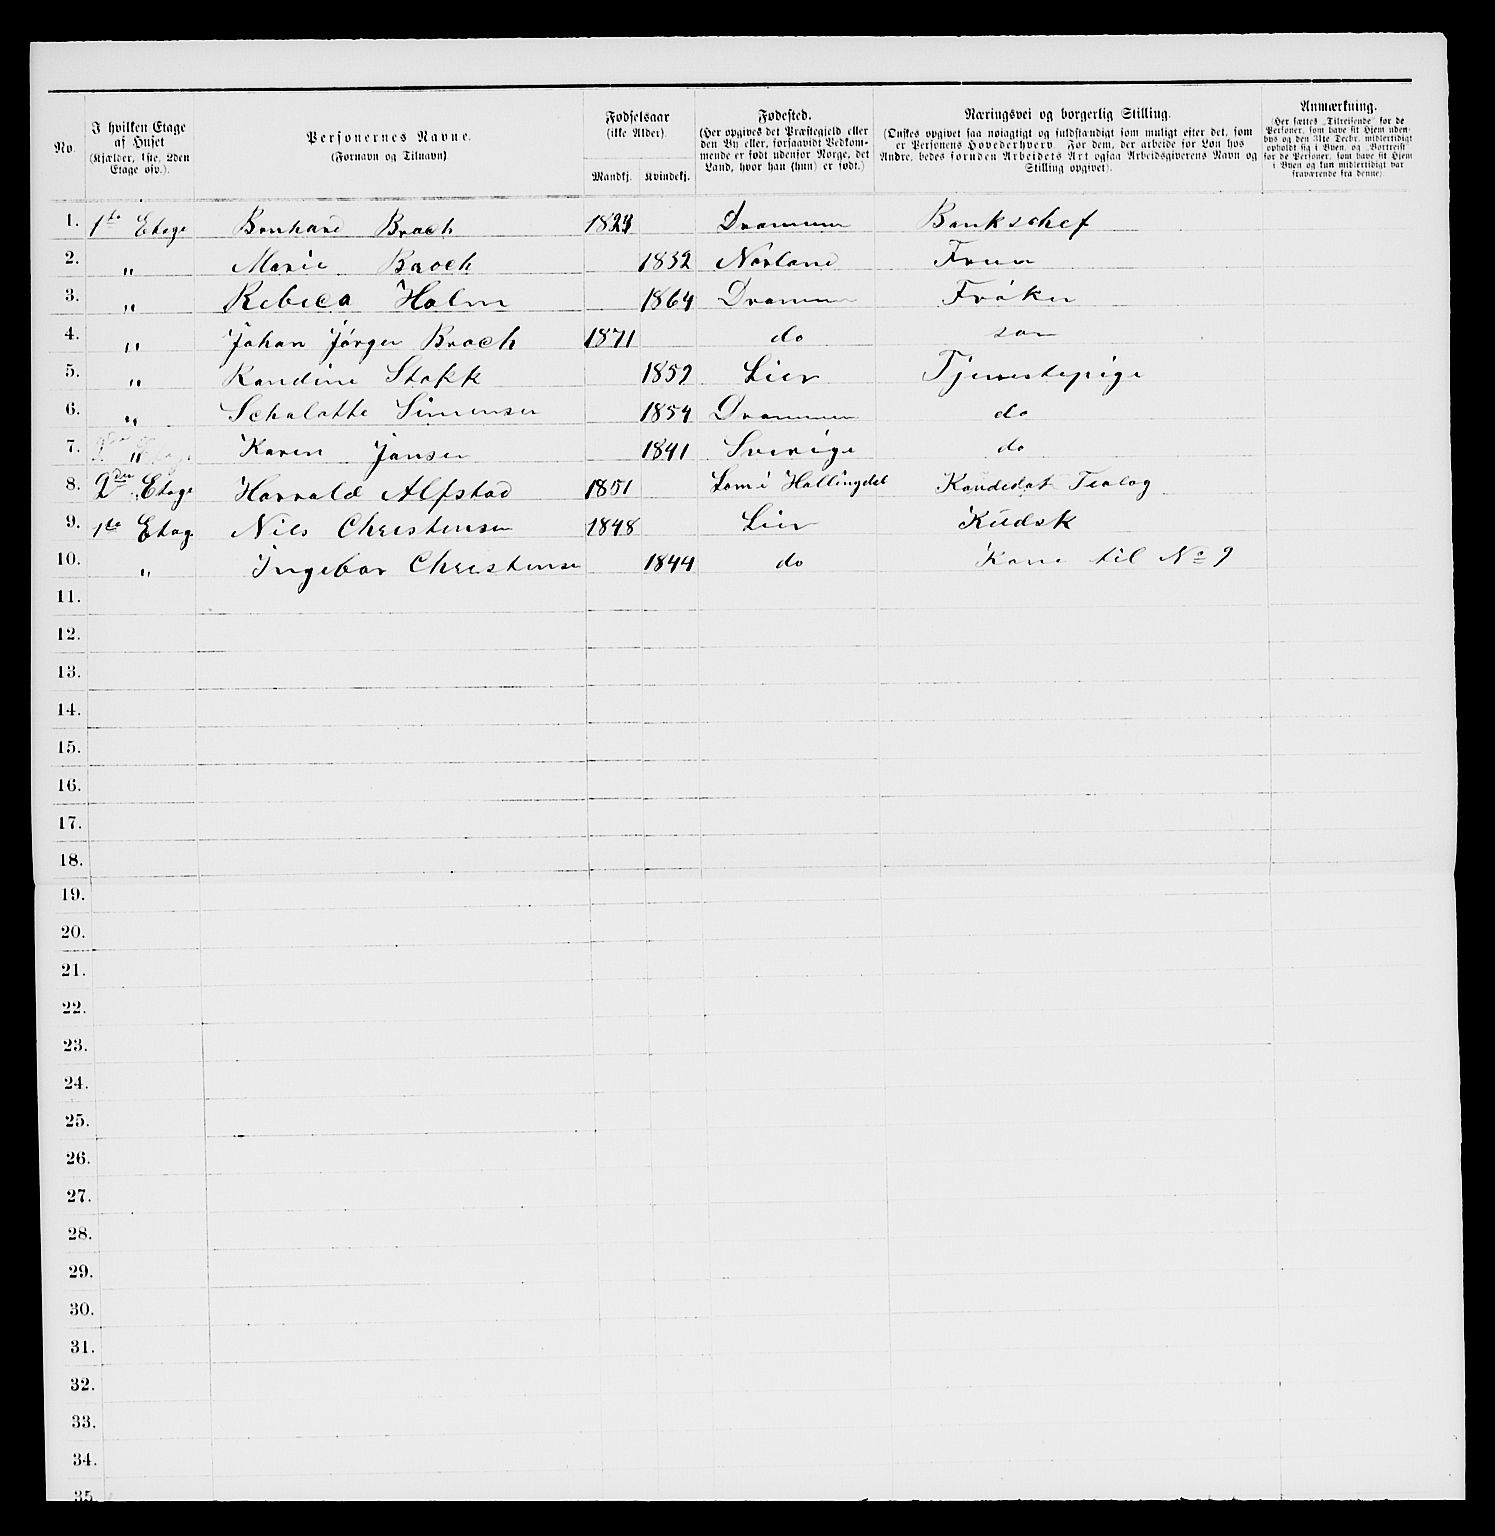 No.
I hvilken Etage af Huset (Kjælder, 1ste, 2den Etage osv.).
Personernes Navne. (Fornavn og Tilnavn)
Fødselsaar (ikke Alder). Mandkj. Kvindekj.
Fødested. (Her opgives det Præstegjeld eller den By eller, forsaavidt Vedkommende er født udenfor Norge, det Land, hvor han (hun) er født.)
Næringsvei og borgerlig Stilling. (Ønskes opgivet saa nøiagtigt og fuldstændigt som muligt efter det, som er Personens Hovederhverv. For dem, der arbeide for Løn hos Andre, bedes foruden Arbeidets Art ogsaa Arbeidsgiverens Navn og Stilling opgivet).
Anmærkning. (Her sættes „Tilreisende“ for de Personer, som have sit Hjem udenbys og den 31te Decbr. midlertidigt opholdt sig i Byen, og „Bortreist“ for de Personer, som have sit Hjem i Byen og kun midlertidigt var fraværende fra denne).
1. 1ste Etage Bernhard Broch 1823 Drammen Bankschef
2. " Marie Broch 1832 Norland Frue
3. " Rebica Holm 1864 Drammen Frøken
4. " Johan Jørgen Broch 1871 do søn
5. " Randine Stokk 1852 Lier Tjenestepige
6. " Schalotte Simensen 1854 Drammen do
7. " Karen Jansen 1841 Sverige do
8. 2den Etage Harrald Alfstad 1851 Lom i Hallingdal Kandedat Tealog
9. 1ste Etag. Nils Christensen 1848 Lier Kudsk
10. " Ingebor Christensen 1844 do Kone til No 9
11.
12.
13.
14.
15.
16.
17.
18.
19.
20.
21.
22.
23.
24.
25.
26.
27.
28.
29.
30.
31.
32.
33.
34.
35.